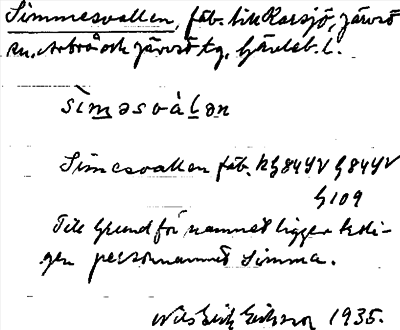 Simmesvallen, fäb. till Karsjö, Järvsö
sn, Arbrå och Järvsö tg, Gävleb. l.
sìməsvàlən
Simesvallen fäb. hg 84 YV G 84 YV
G 109
Till grund för namnet ligger troli-
gen personnamnet Simma.
Nils Erik Eriksson 1935.